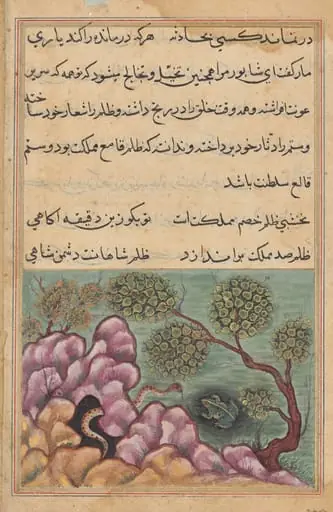 در نماند کسی بحادثه هرکه درمانده را کند یاری
مار کفت ای شاپور مرا همچنین تخیل و تخایل میشود که توهمه که سرین
عونت افراشته و همه وقت خلق را در رنج داشته و ظلم را شعار خود ساخته
و ستم را دثار خود پرداخته و ندانسته که ظلم قامع مملکت بود و ستم
قالع سلطنت باشد
نخشبی ظلم خصم مملکت است تو بکو زین دقیقه آکاهی
ظلم صد مملکت براندازد ظلم شاهانست دشمن شاهی